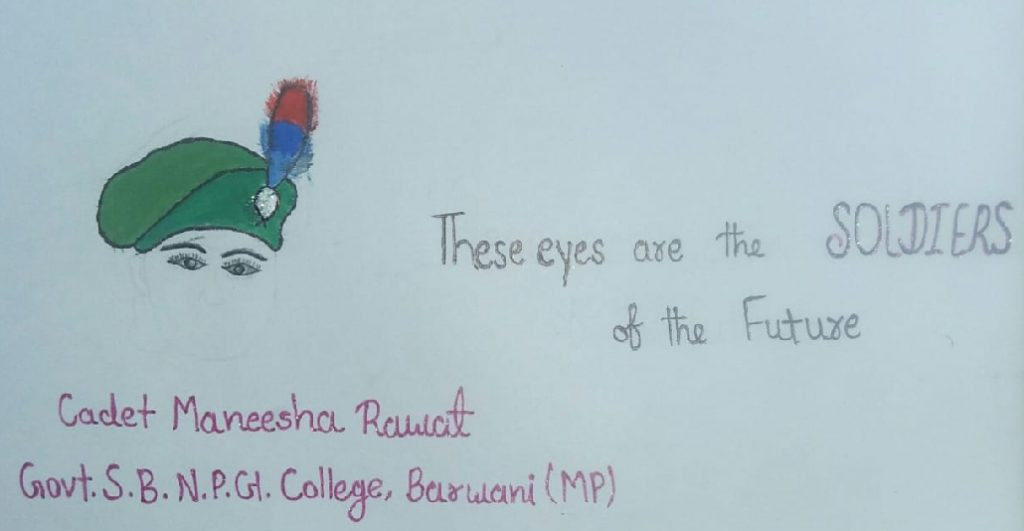 These eyes are the SOLDIERS
of the Future
Cadet Maneesha Rawat
Govt. S. B. N. P. G. College, Barwani (MP)